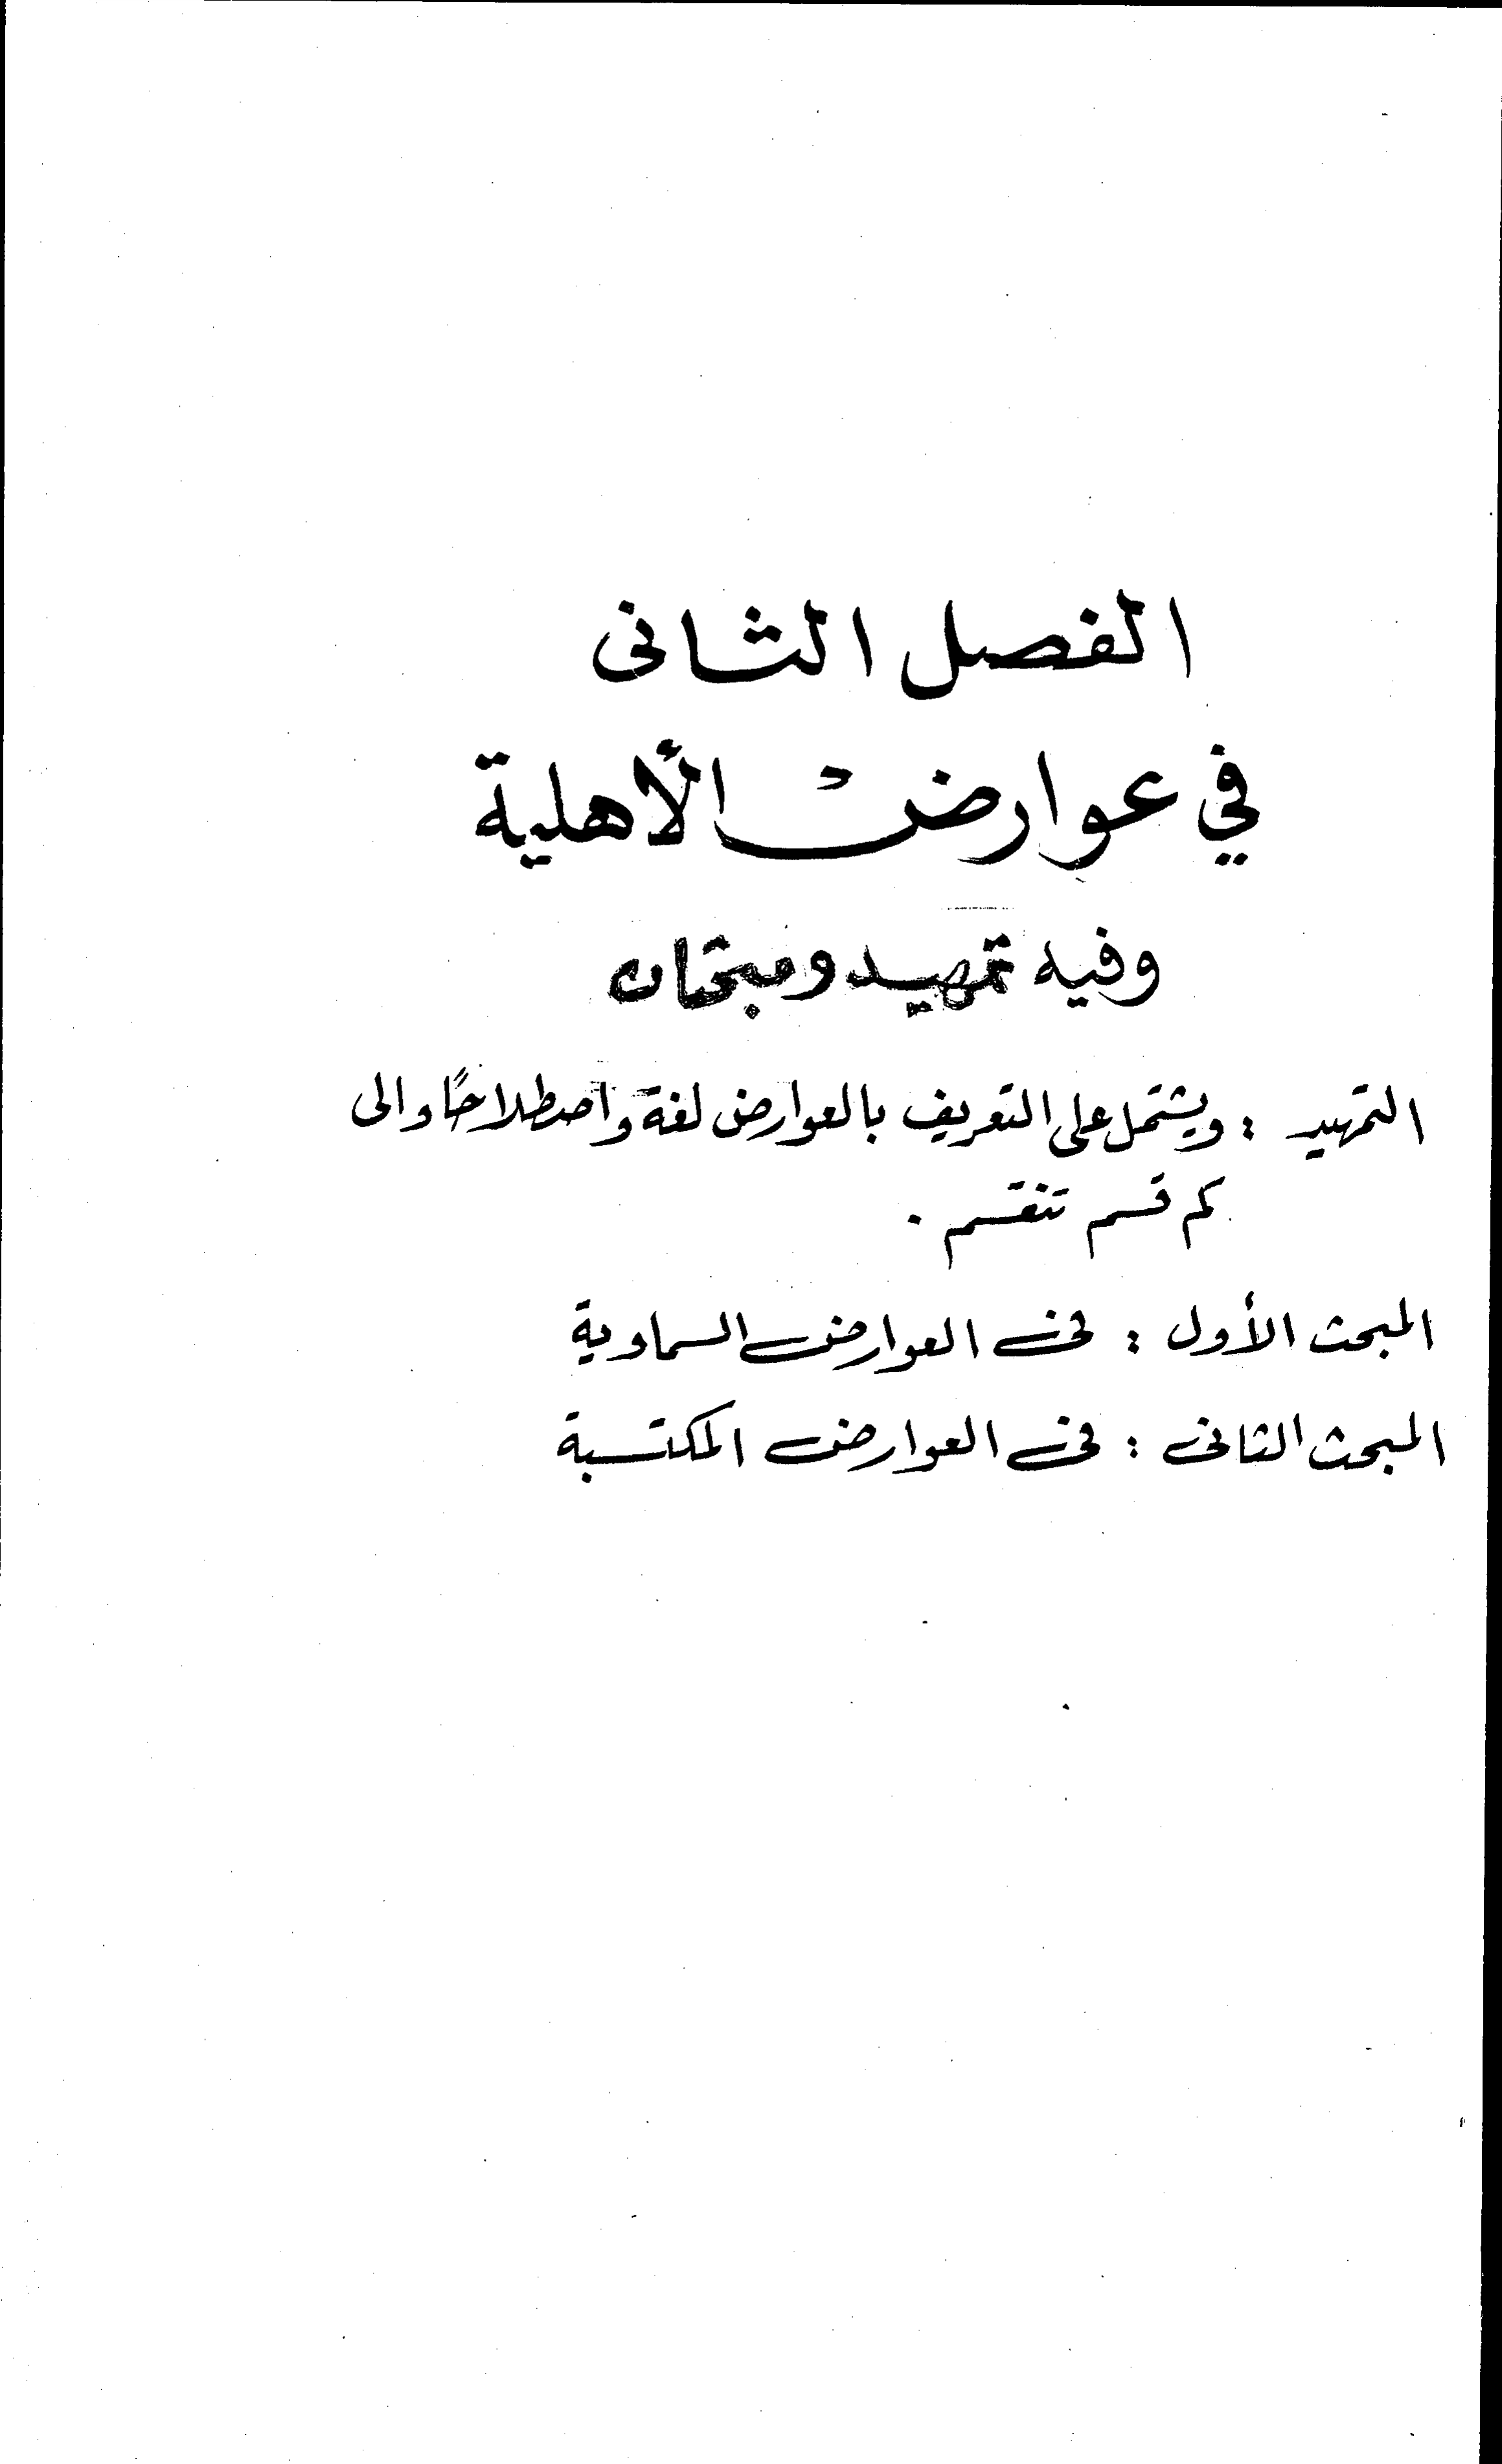 الفصل الثانى
في عوارض الأهلية
وفيه تمهيد ومبحثان
التمهيد : ويشتمل على التعريف بالعوارض لغة واصطلاحًا والى
كم قسم تنقسم .
المبحث الأول : فى العوارض السماوية
المبحث الثانى : فى العوارض المكتسبة